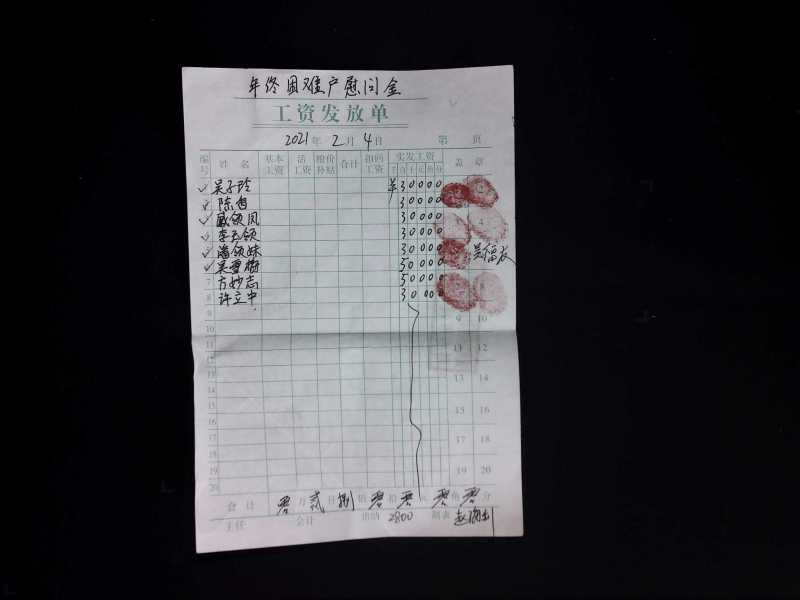 年终困难户慰问金
工资发放单
2021年 2月 4日 第 页
编号 姓名 基本工资 活工资 粮价补贴 合计 扣回工资 实发工资 盖章
千百十元角分
吴子玲 30000
陈香 30000
戚领凤 30000
李玉领 30000
潘领妹 30000
吴雪梅 50000
7 方妙志 50000
8 许立中 30000
吴福友
9 9 10
10
11 11 12
12
13 13 14
14
15 15 16
16
17 17 18
18
19 19 20
20
合计 零万贰仟捌佰零拾零元零角零分
主任 会计 出纳 2800 制表